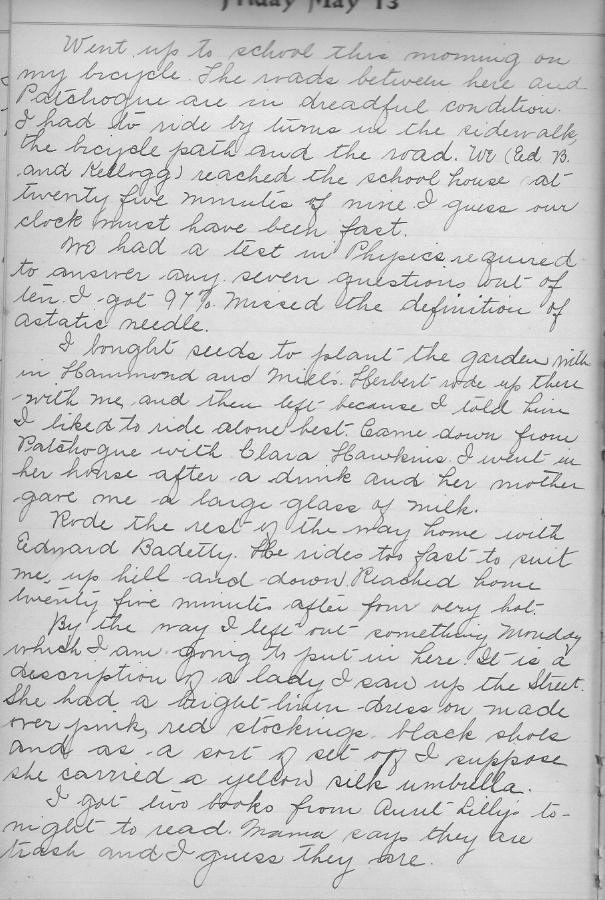 Friday May 13
Went up to school this morning on
my bicycle. The roads between here and
Patchogue are in dreadful condition.
I had to ride by turns in the sidewalk,
the bicycle path and the road. We (Ed B.
and Kellogg) reached the school house at
twenty five minutes of nine. I guess our
clock must have been fast.
We had a test in Physics required
to answer any seven questions out of
ten. I got 97%. Missed the definition of
astatic needle.
I bought seeds to plant the garden with
in Hammond and Mills. Herbert rode up there
with me, and then left because I told him
I liked to ride alone best. Came down from
Patchogue with Clara Hawkins. I went in
her house after a drink and her mother
gave me a large glass of milk.
Rode the rest of the way home with
Edward Badetty. He rides too fast to suit
me, up hill and down. Reached home
twenty five minutes after four very hot.
By the way I left out something Monday
which I am going to put in here. It is a
description of a lady I saw up the Street.
She had a bright linen dress on made
over pink, red stockings black shoes
and as a sort of set off I suppose
she carried a yellow silk umbrella.
I got two books from Aunt Lilly's to-
night to read. Mama says they are
trash and I guess they are.